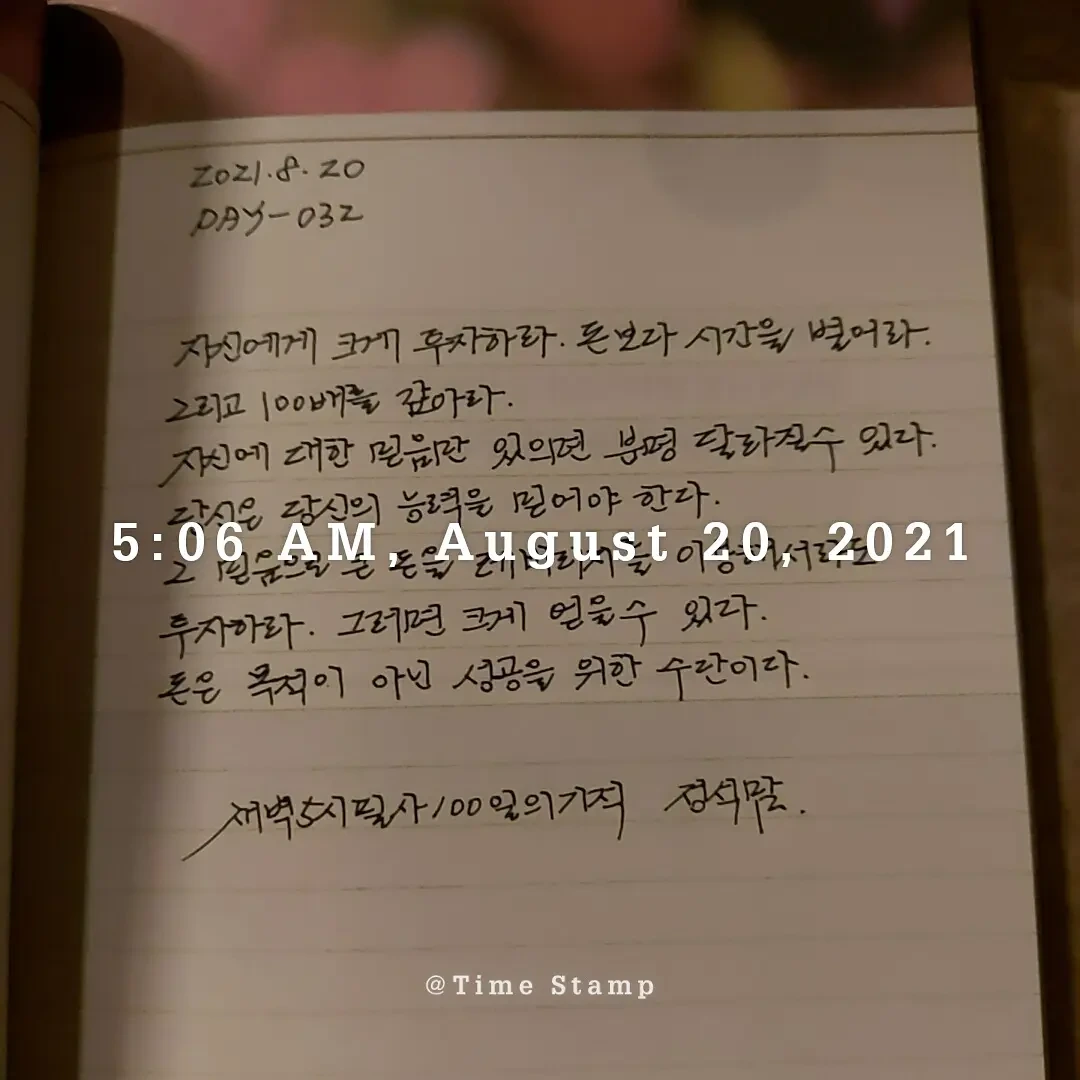 2021.8.20
DAY-032
자신에게 크게 투자하라. 돈보다 시간을 벌어라.
그리고 100배를 갚아라.
자신에 대한 믿음만 있으면 분명 달라질수 있다.
당신은 당신의 능력을 믿어야 한다.
5:06 AM, August 20, 2021
그 믿음으로 돈을 레버리지를
투자하라. 그러면 크게 얻을수 있다.
돈은 목적이 아닌 성공을 위한 수단이다.
새벽5시필사100일의기적
@Time Stamp